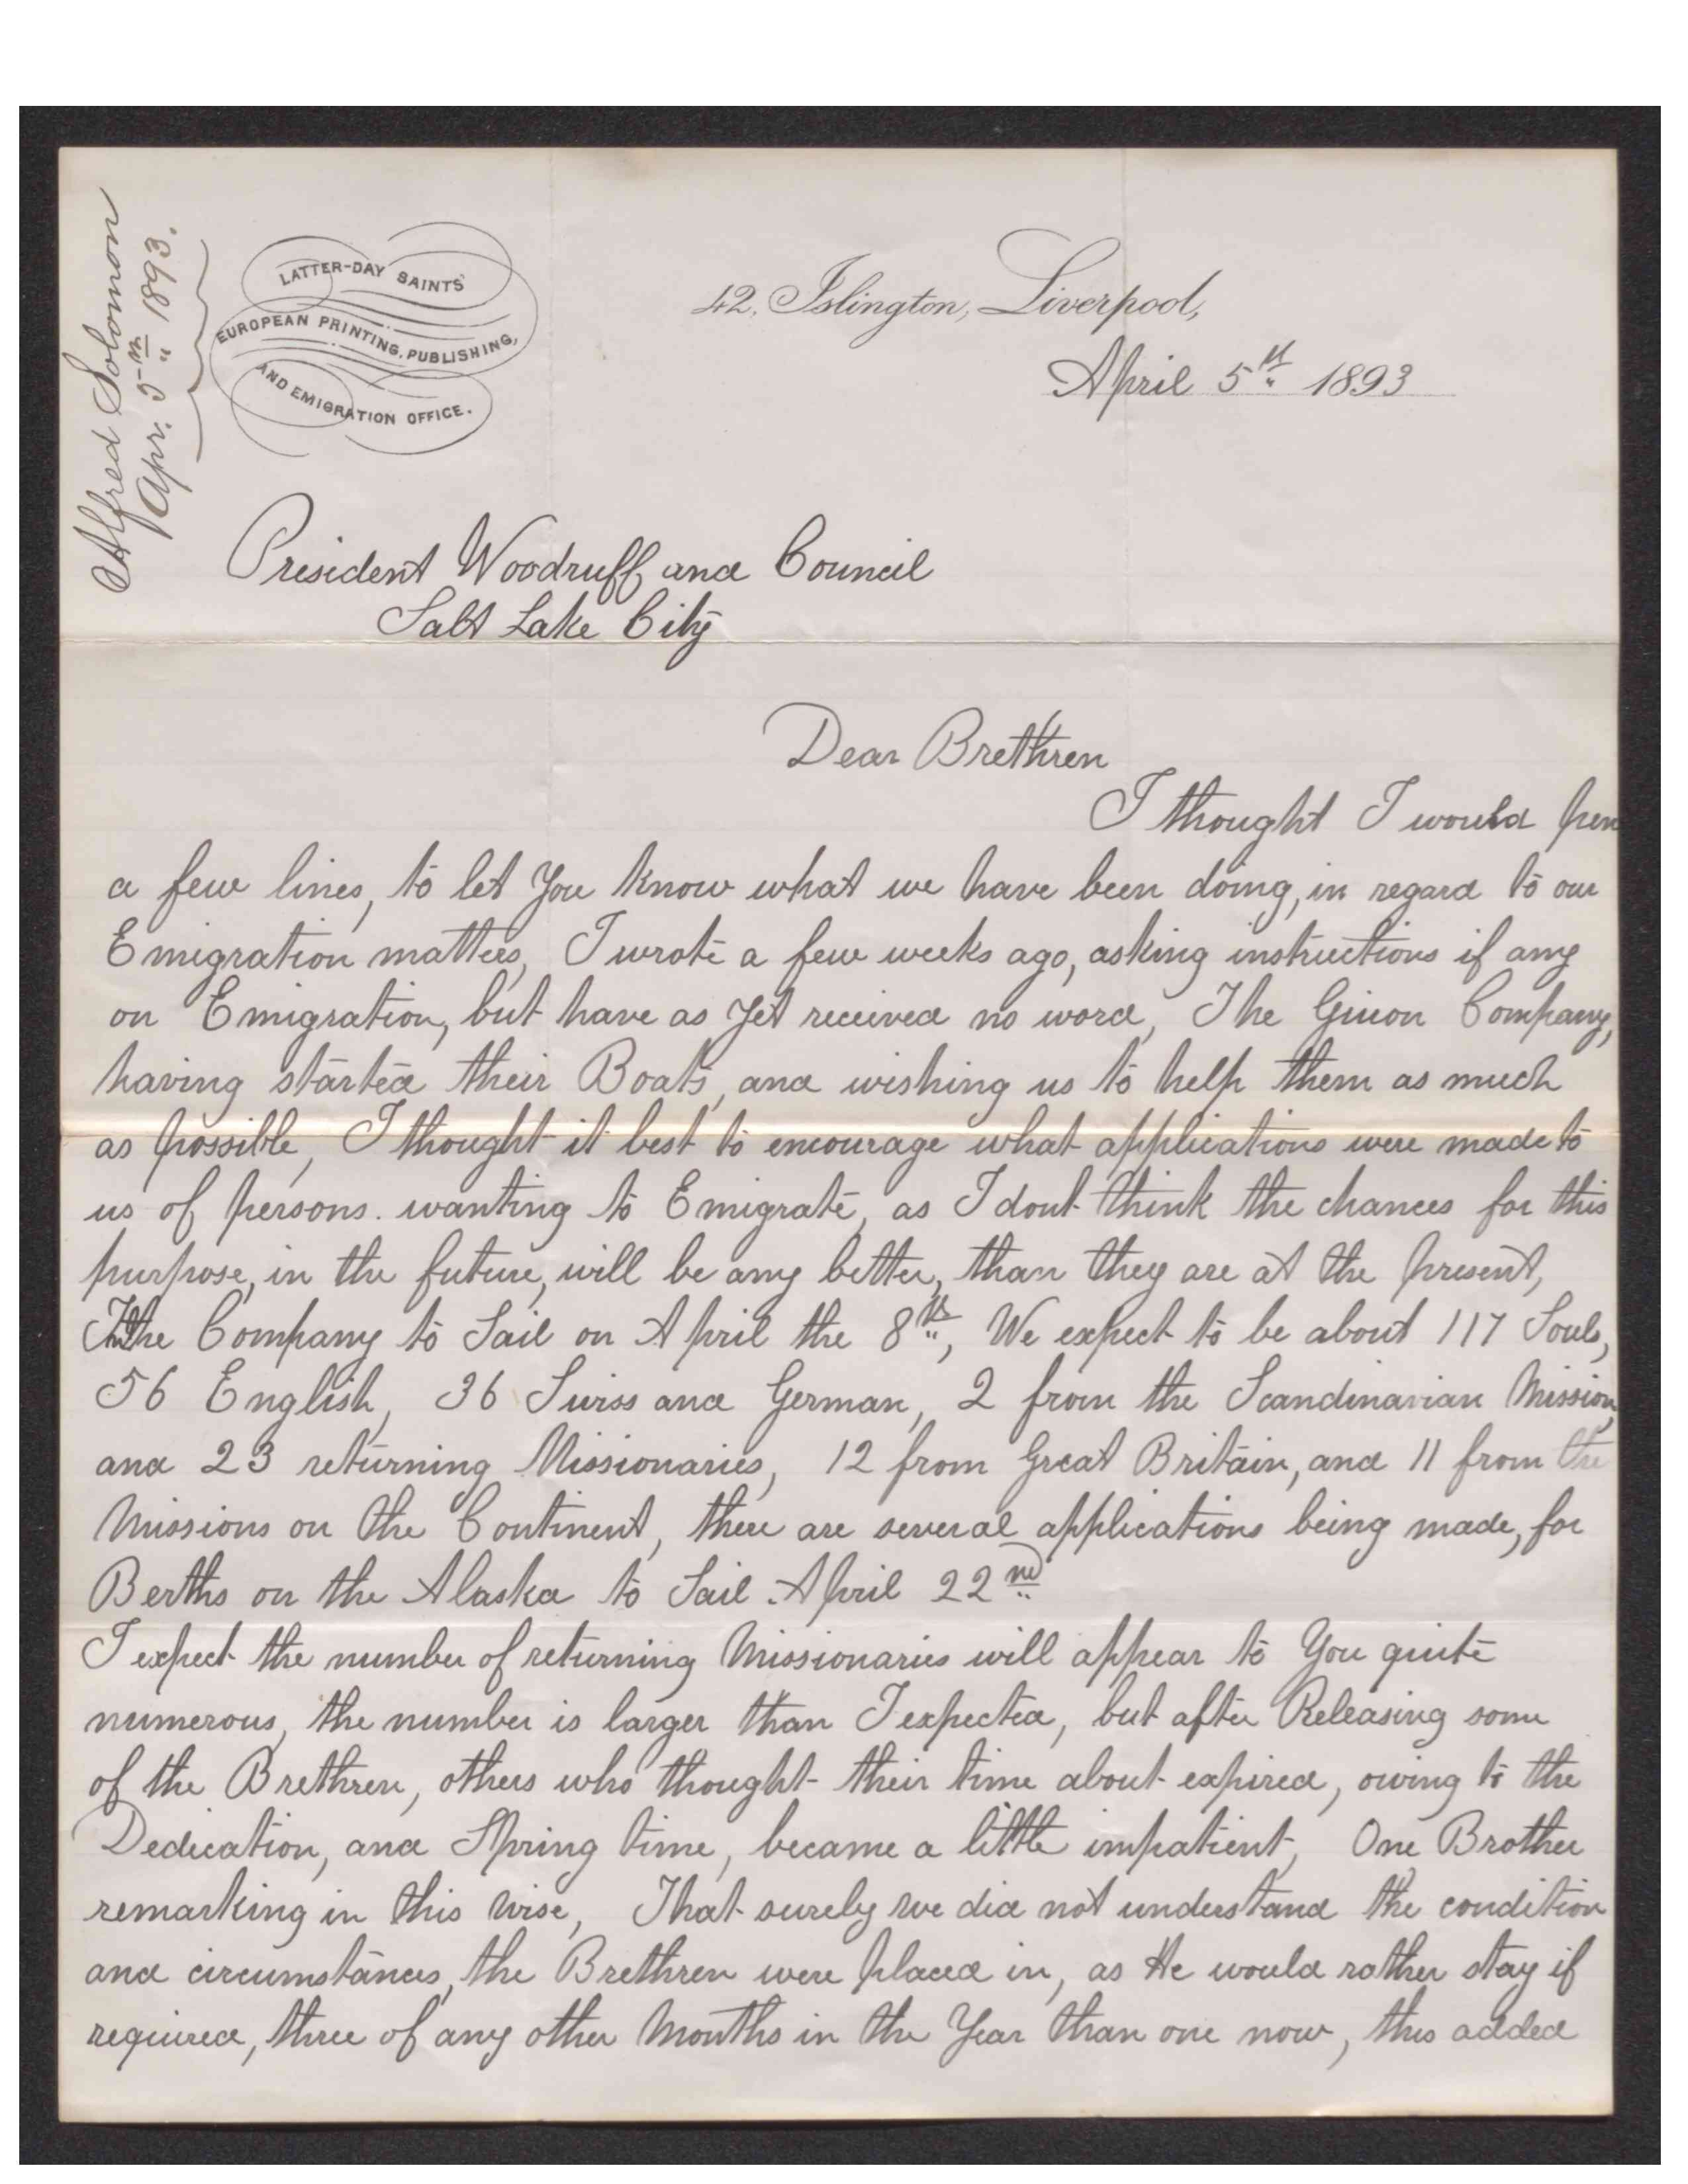 Alfred Solomon
Apr. 5th 1893.
LATTER-DAY SAINTS'
EUROPEAN PRINTING, PUBLISHING,
AND EMIGRATION OFFICE.
42, Islington, Liverpool,
April 5th 1893
President Woodruff and Council
Salt Lake City
Dear Brethren
I thought I would pen
a few lines, to let You know what we have been doing, in regard to our
Emigration matters, I wrote a few weeks ago, asking instructions if any
on Emigration, but have as Yet received no word, The Guion Company,
having started their Boats, and wishing us to help them as much
as possible, I thought it best to encourage what applications were made to
us of persons. wanting to Emigrate, as I dont think the chances for this
purpose, in the future, will be any better, than they are at the present,
The Company to Sail on April the 8th, We expect to be about 117 Souls,
56 English, 36 Swiss and German, 2 from the Scandinavian Mission,
and 23 returning Missionaries, 12 from Great Britain, and 11 from the
Missions on the Continent, there are several applications being made, for
Berths on the Alaska to Sail April 22nd
I expect the number of returning Missionaries will appear to You quite
numerous, the number is larger than I expected, but after Releasing some
of the Brethren, others who thought their time about expired, owing to the
Dedication, and Spring time, became a little impatient, One Brother
remarking in this wise, That surely we did not understand the condition
and circumstances, the Brethren were placed in, as He would rather stay if
required, three of any other Months in the Year than one now, this added